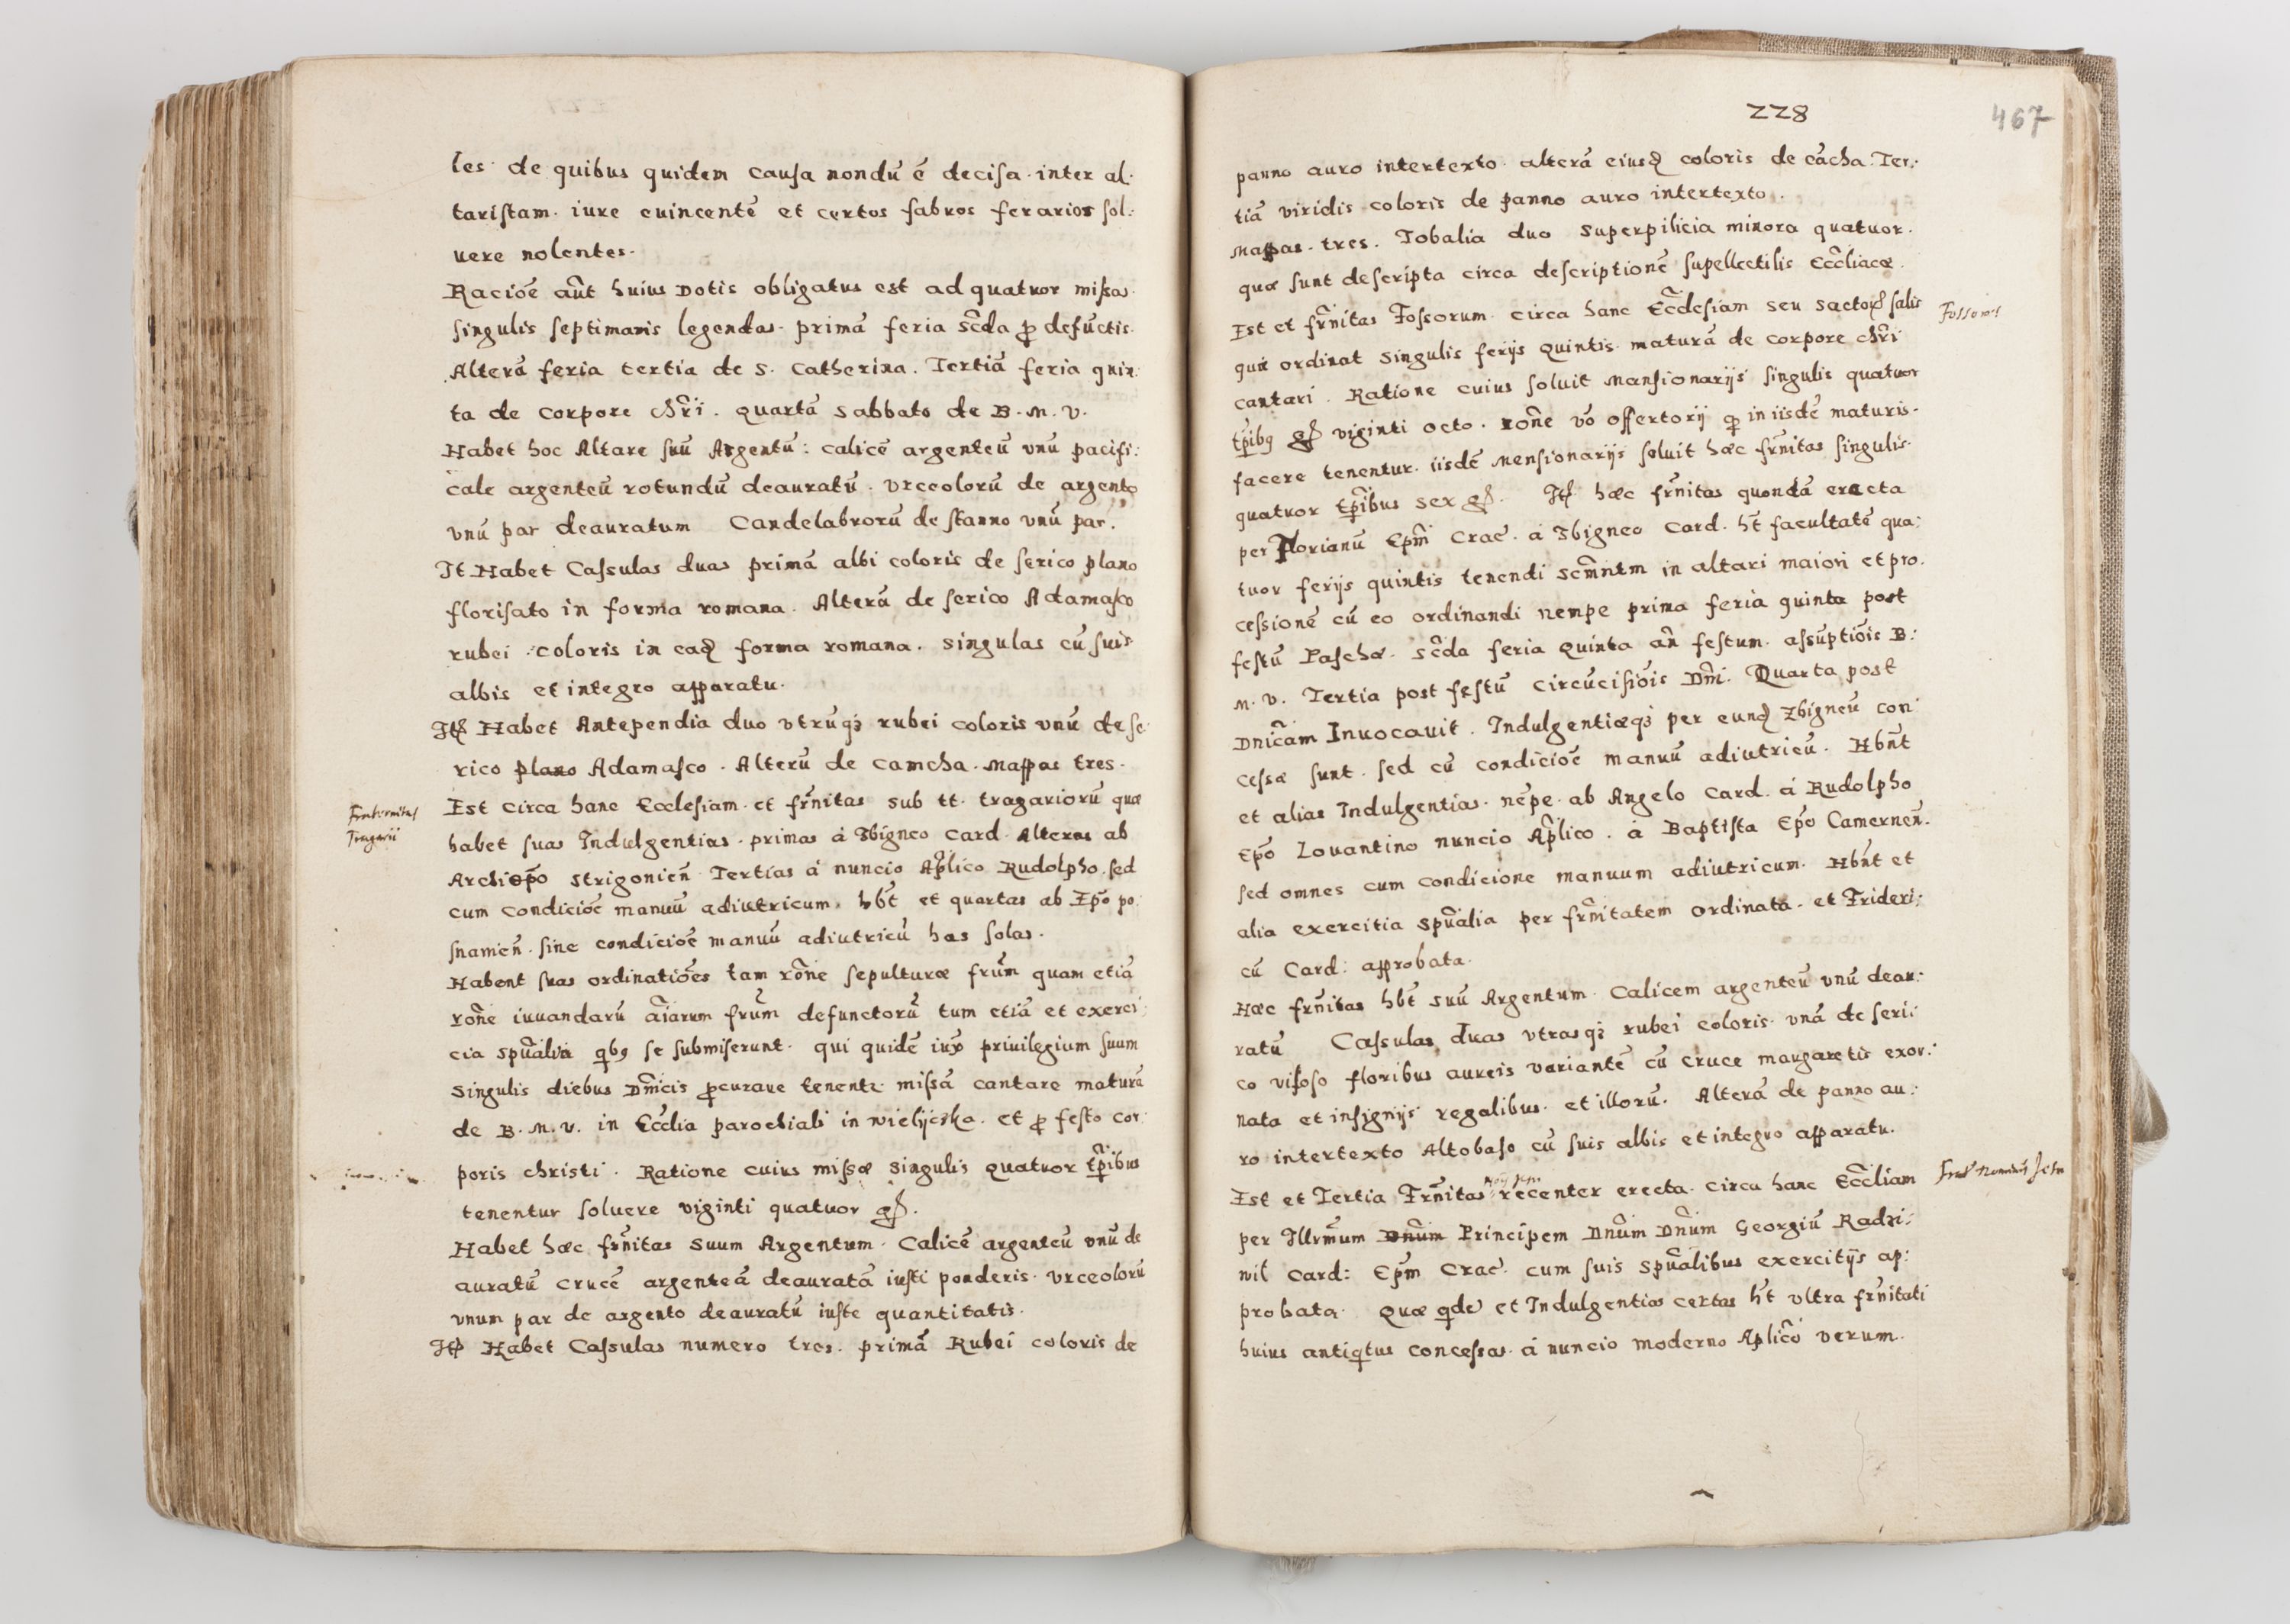 les de quibus quidem causa nondū ē decisa inter al-
taristam iure euincentē et certos fabros ferarios sol-
uere nolentes.
Racioē aūt huius Dotis obligatus est ad quatuor missas
singulis septimanis legendas. primā feria scd̄a p̱ defūctis
Alterā feria tertia de S. Catherina. Tertiā feria quin-
ta de Corpore chr̄i. quartā Sabbato de B. M. V.
Habet hoc Altare suū Argentū: calicē argenteū vnū pacifi-
cale argenteū rotundū deauratū. vrceolorū de argento
vnū par deauratum Candelabrorū de stanno vnū par.
It Habet Cassulas duas primā albi coloris de serico plano
florisato in forma romana. Alterā de serico Adamasco
rubei coloris in eadꝫ forma romana. singulas cū suis
albis et integro apparatu.
Itꝫ Habet Antependia duo vtrūqꝫ rubei coloris vnū de se-
rico plano Adamasco. Alterū de camcha. Mappas tres.
Fraternitas
Tragarii
Est circa hanc Ecclesiam et fr̄nitas sub tt. tragariorū quæ
habet suas Indulgentias. primas á Sbigneo Card. Alteras ab
Archiep̄o Strigonien̄ Tertias á nuncio Ap̄lico Rudolpho sed
cum condicioē manuū adiutricum. hb̄t et quartas ab Ep̄o po-
snamen̄. sine condicioē manuū adiutricū has solas.
Habent suas ordinatiōes tam rōne sepulturæ frūm quam etiā
rōne iuuandarū aīarum frūm defunctorū tum etiā et exerci-
cia spūalia qbꝫ se submiserunt. qui quidē iux̄ priuilegium suum
singulis diebus Dn̄icis p̱curare tenentr missā cantare maturā
de B. M. V. in Eccl̄ia parochiali in wielijczka. et p̱ festo cor-
poris christi. Ratione cuius missæ singulis quatuor tp̄ibus
tenentur soluere viginti quatuor gꝭ.
Habet hæc fr̄nitas suum Argentum. Calicē argenteū vnū de
auratū crucē argenteā deauratā iusti ponderis. vrceolorū
vnum par de argento deauratū iuste quantitatis.
Itꝫ Habet Cassulas numero tres. primā Rubei coloris de
228
467
panno auro intertexto. alterā eiusdꝫ coloris de cācha. Ter-
tiā viridis coloris de panno auro intertexto.
Mappas tres. Tobalia duo superpilicia minora quatuor.
quæ sunt descripta circa descriptionē supellectilis Eccl̄iacæ.
Est et fr̄nitas Fossorum circa hanc Eccl̄esiam seu sectoꝝ salis
Fossores
quæ ordinat singulis ferijs quintis maturā de corpore chr̄i
cantari. Ratione cuius soluit Mansionarijs singulis quatuor
tp̄ibꝫ gꝭ viginti octo. rōne vō offertorij q̱ in iisdē maturis
facere tenentur. iisdē Mensionarijs soluit hæc fr̄nitas singulis
quatuor tp̄ibus sex gꝭ. Itꝫ hæc fr̄nitas quondā erecta
per Florianū Ep̄m Crac̄. á Sbigneo Card. h̄t facultatē qua-
tuor ferijs quintis tenendi Scr̄mntm in altari maiori et pro-
cessionē cū eo ordinandi nempe prima feria quinta post
festū Paschæ. Sc̄da feria quinta an̄ festum assūptiōis B.
M. V. Tertia post festū circūcisiōis Dn̄i. Quarta post
Dnīcam Inuocauit. Indulgentiæqꝫ per eundꝫ Zbigneū con-
cessæ sunt. sed cū condicioē manuū adiutricū. Hb̄nt
et alias Indulgentias. nēpe ab Angelo Card. á Rudolpho
Ep̄o Louantino nuncio Ap̄lico. á Baptista Ep̄o Camernen̄.
sed omnes cum condicione manuum adiutricum. Hb̄nt et
alia exercitia spūalia per fr̄nitatem ordinata. et Frideri-
cū Card: approbata.
Hæc fr̄nitas hb̄t suū Argentum. Calicem argenteū vnū deau-
ratū Cassulas duas vtrasqꝫ rubei coloris. vnā de seri-
co visoso floribus aureis variantē cū cruce margaretis exor-
nata et insignijs regalibus et illorū. Alterā de panno au-
ro intertexto Altobaso cū suis albis et integro apparatu.
Est et Tertia Fr̄nitas recenter erecta circa hanc Eccl̄iam
per Illrm̄um Dn̄um Principem Dn̄um Dn̄um Georgiū Radzi-
wil Card: Ep̄m Crac̄. cum suis spūalibus exercitijs ap-
probata. Quæ qdē et Indulgentias certas h̄t vltra fr̄nitati
huius antiqtus concessas á nuncio moderno Apl̄ico verum